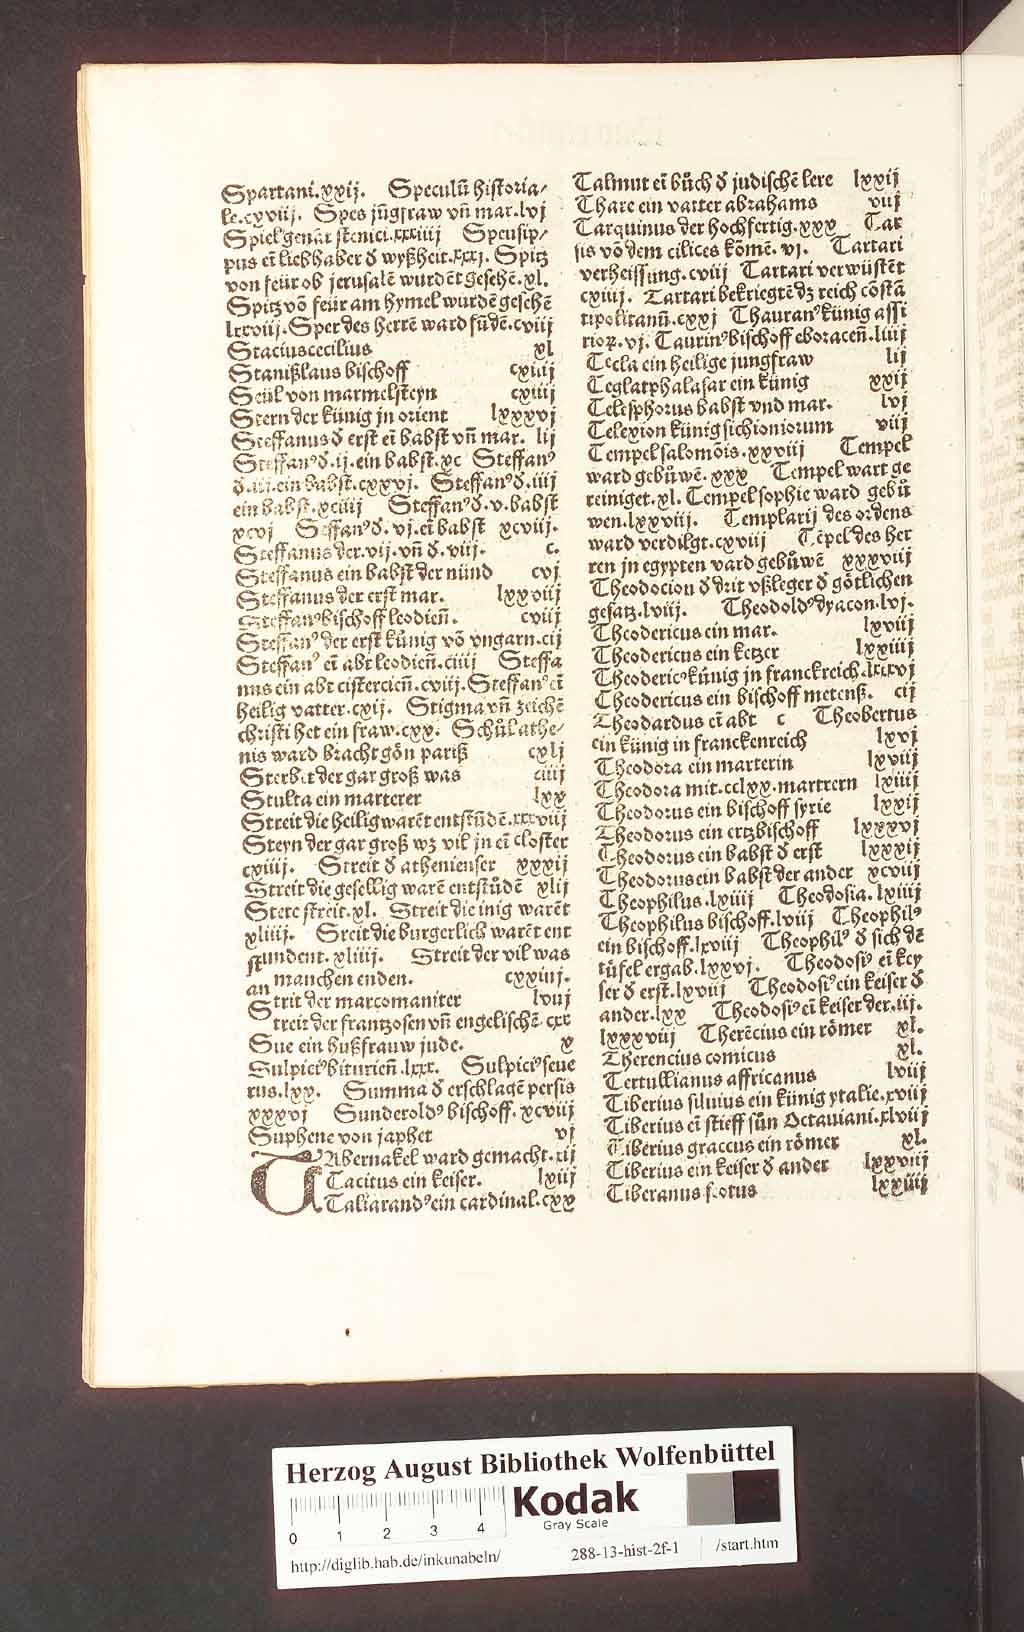 Spartani.xxij. Speculū historia/
le.cxviij. Spes jūgfraw vn̄ mar.lvj
Spiel genāt stenici.xxxiiij Speusip/
pus eī liebhaber ď wyßheit.xxxj. Spitz
von feür ob jerusalē wurdēt gesehē.xl.
Spitz vō feür am hymel wurdē gesehē
lxxviij. Sper des herrē ward fūdē.cviij
Stacius cecilius xl
Stanißlaus bischoff cxiiij
Seül von marmelsteyn cxiiij
Stern der künig jn orient lxxxvj
Steffanus ď erst eī babst vn̄ mar. lij
Steffanꝰ ď.ij.ein babst.xc Steffanꝰ
ď.iij.ein babst.cxxvj. Steffanꝰ ď.iiij
ein babst.xciiij Steffanꝰ ď.v.babst
xcvj Steffanꝰ ď.vj.eī babst xcviij.
Steffanus der.vij.vn̄ ď.viij. c.
Steffanus ein babst der nünd cvj
Steffanus der erst mar. lxxviij
Steffanꝰ bischoff leodien̄. cviij
Steffanꝰ der erst künig vō vngarn.cij
Steffanꝰ eī abt leodien̄.ciiij Steffa
nus ein abt cistercien̄.cviij.Steffanꝰ eī
heilig vatter.cxij. Stigma vn̄ zeichē
christi het ein fraw.cxx. Schůl athe/
nis ward bracht gōn pariß cxlj
Sterbet der gar groß was ciiij
Stulta ein marterer lxx
Streit die heilig warēt entstūdē.xxxviij
Steyn der gar groß wz vil jn eī closter
cxiiij. Streit ď athenienser xxxij
Streit die gesellig warē entstůdē xlij
Stete streit.xl. Streit die inig warēt
xliiij. Streit die burgerlich warēt ent
stundent.xliiij. Streit der vil was
an manchen enden. cxxiiij.
Strit der marcomaniter lvij
Streit der frantzosen vn̄ engelischē.cxx
Sue ein hußfrauw jude. x
Sulpiciꝰ bituricn̄.lxxx. Sulpiciꝰ seue
rus.lxx. Summa ď erschlagē persis
xxxvj Sunderoldꝰ bischoff.xcviij
Suphene von japhet vj
TAbernakel ward gemacht.xij
Tacitus ein keiser. lxiij
Taliarandꝰ ein cardinal.cxx
Talmut eī bůch ď judischē lere lxxij
Thare ein vatter abrahams viij
Tarquinus der hochfertig.xxx Tar
sis vō dem cilices kōmē.vj. Tartari
verheissung.cviij Tartari verwüstēt
cxiiij. Tartari bekriegtē dz reich cōstā
tipolitanū.cxxj Thauranꝰ künig assi
rioꝝ.vj. Taurinꝰ bischoff eboracen̄.liiij
Tecla ein heilige jungfraw lij
Teglatphalasar ein künig xxij
Telesphorus babst vnd mar. lvj
Telexion künig sichioniorum viij
Tempel salomōis.xxviij Tempel
ward gebůwē.xxx Tempel wart ge
reiniget.xl. Tempel sophie ward gebů
wen.lxxviij. Templarij des ordens
ward verdilgt.cxviij Tēpel des her
ren jn egypten vard gebůwē xxxviij
Theodocion ď drit vßleger ď götlichen
gesatz.lviij. Theodoldꝰ dyacon.lvj.
Theodericus ein mar. lxviij
Theodericus ein ketzer lxxiiij
Theodericꝰ künig jn franckreich.lxxxvj
Theodericus ein bischoff metenß. cij
Theodardus eī abt c Theobertus
ein künig in franckenreich lxvj
Theodora ein marterin lxviij
Theodora mit.cclxx.martrern lxiiij
Theodorus ein bischoff syrie lxxij
Theodorus ein ertzbischoff lxxxvj
Theodorus ein babst ď erst lxxxij
Theodorus ein babst der ander xcviij
Theophilus.lxiiij Theodosia.lxiiij
Theophilus bischoff.lviij Theophilꝰ
ein bischoff.lxviij Theophilꝰ ď sich dē
tüfel ergab.lxxvj. Theodosiꝰ eī key
ser ď erst.lxviij Theodosiꝰ ein keiser ď
ander.lxx Theodosiꝰ eī keiser der.iij.
lxxxviij Therēcius ein römer xl.
Therencius comicus xl.
Tertullianus affricanus lviij
Tiberius siluius ein künig ytalie.xviij
Tiberius eī stieff sün Octauiani.xlviij
Tiberius graccus ein römer xl.
Tiberius ein keiser ď ander lxxviij
Tiberanus scotus lxxiiij
Herzog August Bibliothek Wolfenbüttel
0 1 2 3 4
Kodak
Gray Scale
http://diglib.hab.de/inkunabeln/ 288-13-hist-2f-1 /start.htm